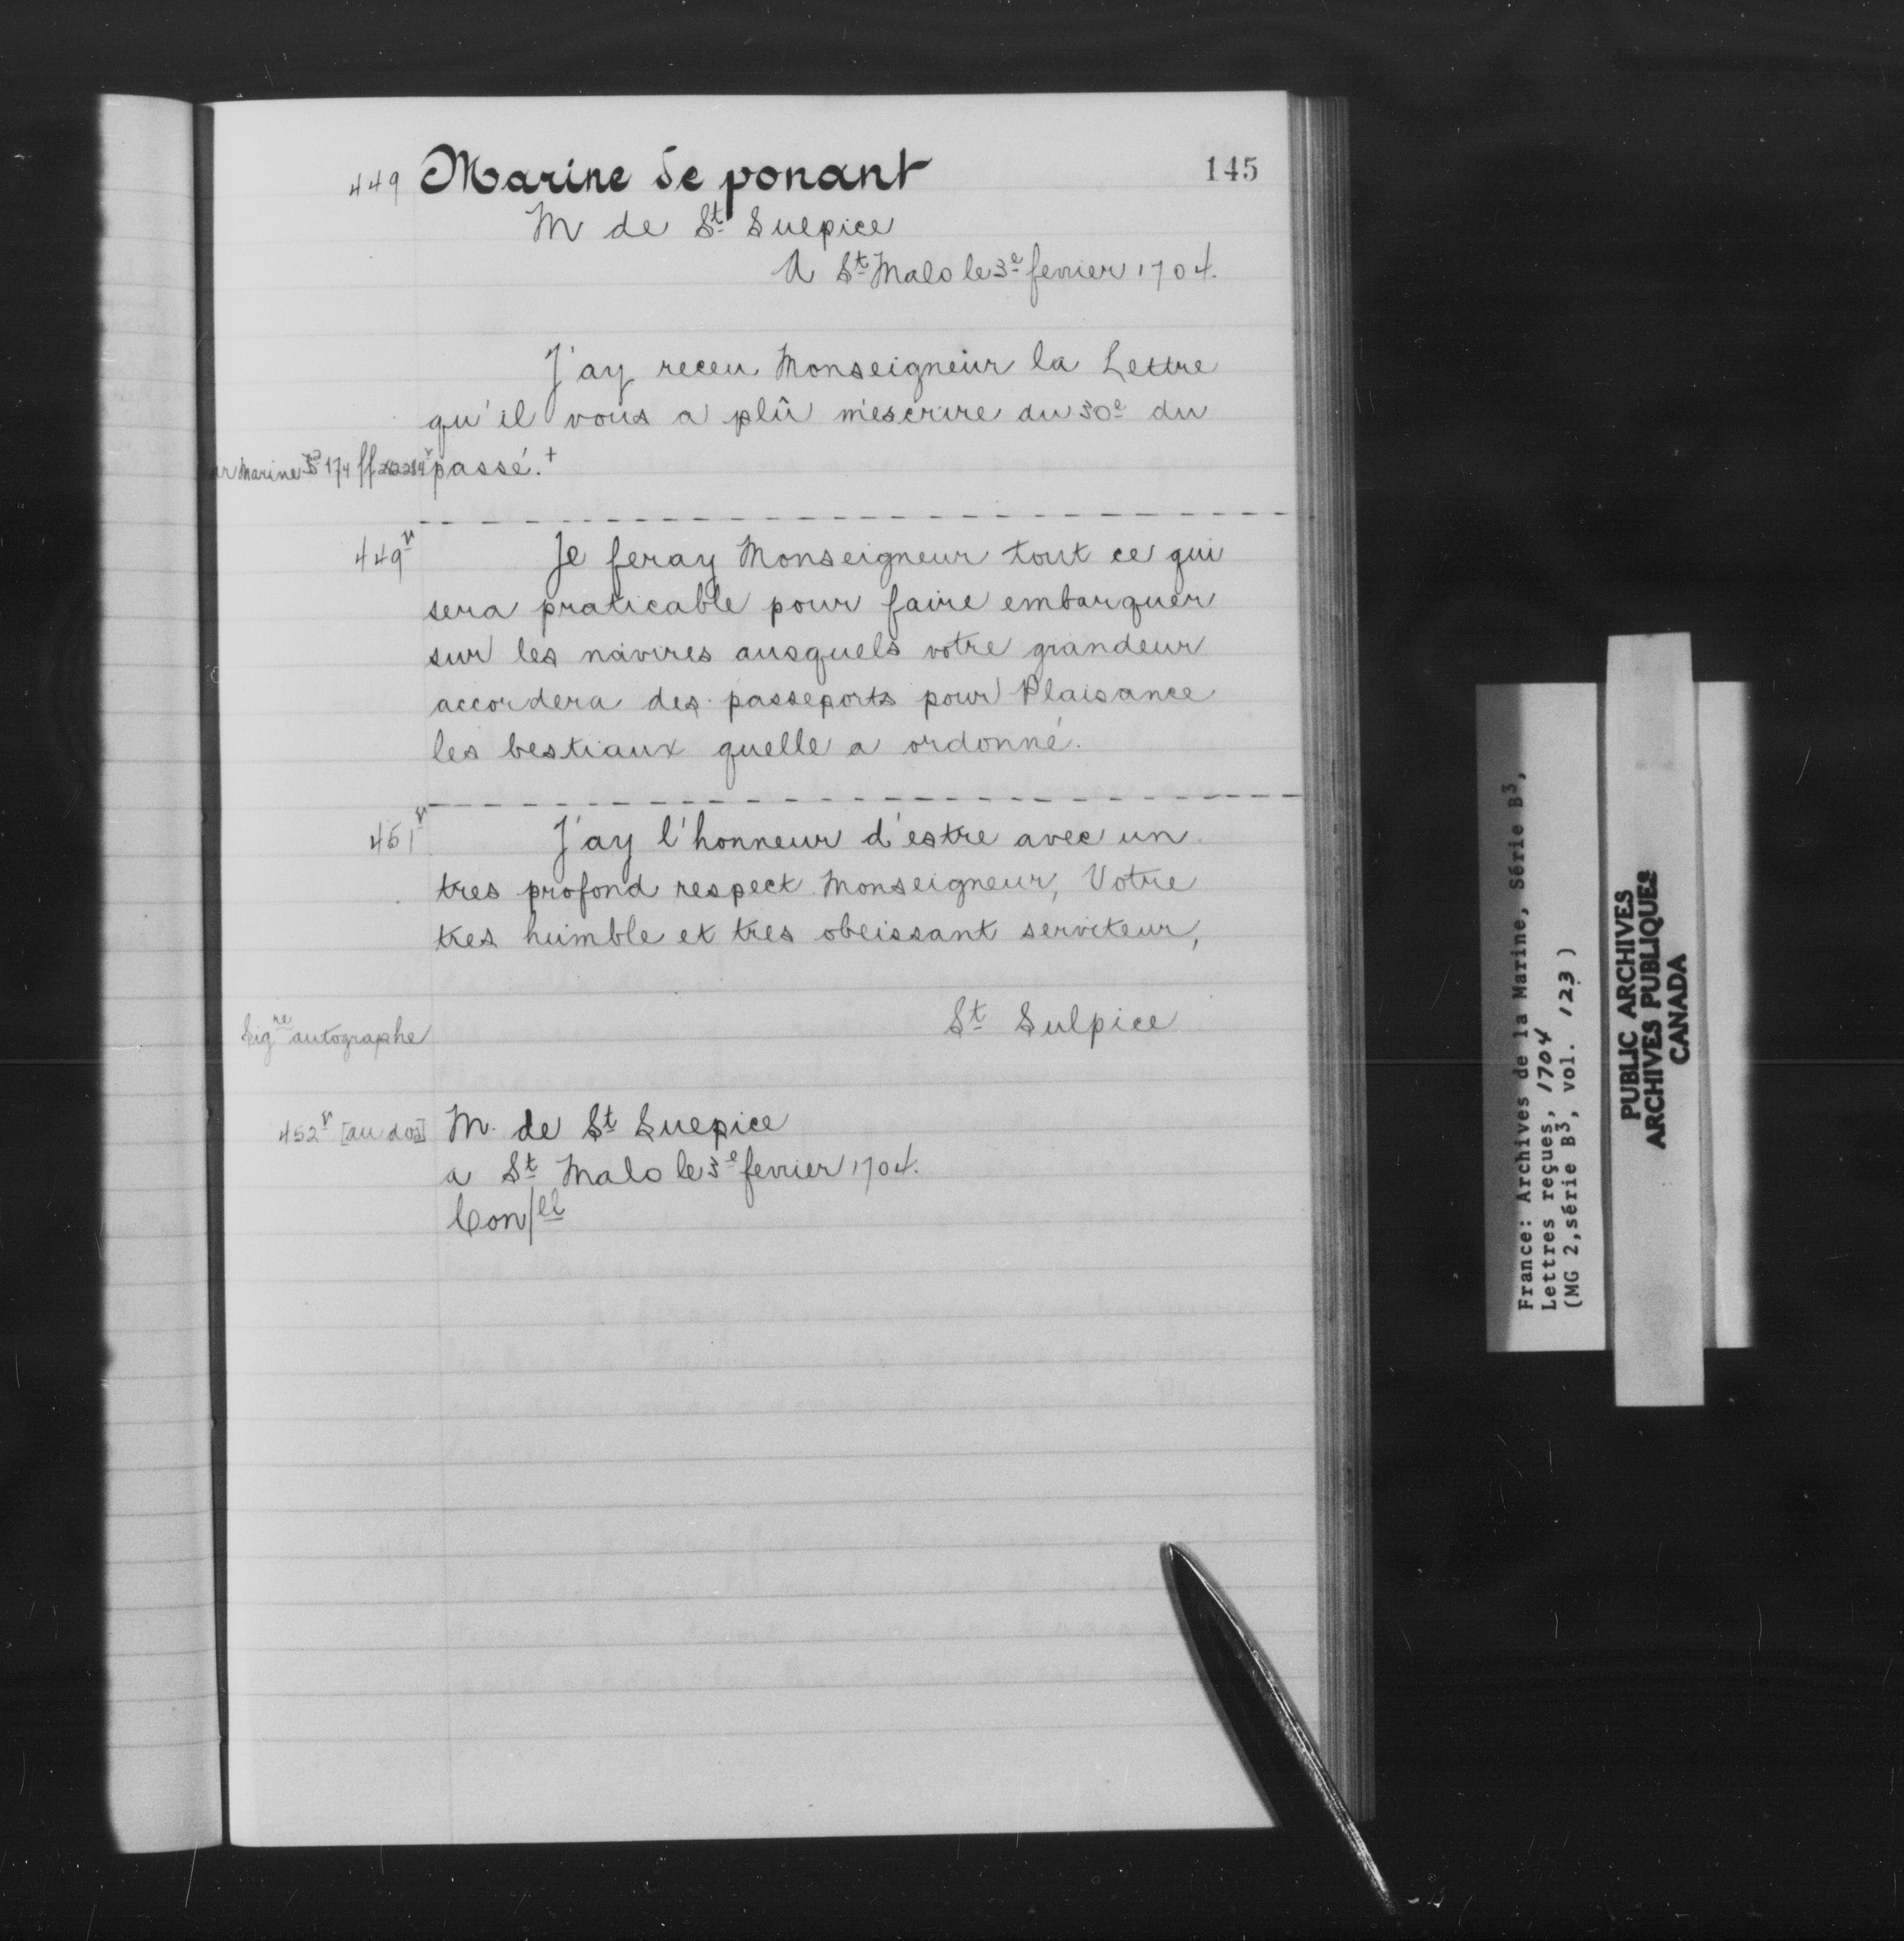 145
449 Marine de ponant
M de St Suepice
A St Malo le 3e fevrier 1704.
J'ay receu Monseigneur la Lettre
qu'il vous a plû m'escrire du 30e du
ar Marine 174 ff passé.+
449v Je feray Monseigneur tout ce qui
sera praticable pour faire embarquer
sur les navires ausquels votre grandeur
accordera des passeports pour Plaisance
les bestiaux quelle a ordonné.
451v J'ay l'honneur d'estre avec un
tres profond respect Monseigneur, Votre
tres humble et tres obeissant serviteur,
St Sulpice
Sigre autographe
452v [au dos] M. de St Suepice
a St Malo le 3e fevrier 1704.
Con/ll
France: Archives de la Marine, Série B3,
Lettres reçues, 1704
(MG 2,série B3, vol. 123)
PUBLIC ARCHIVES
ARCHIVES PUBLIQUES
CANADA